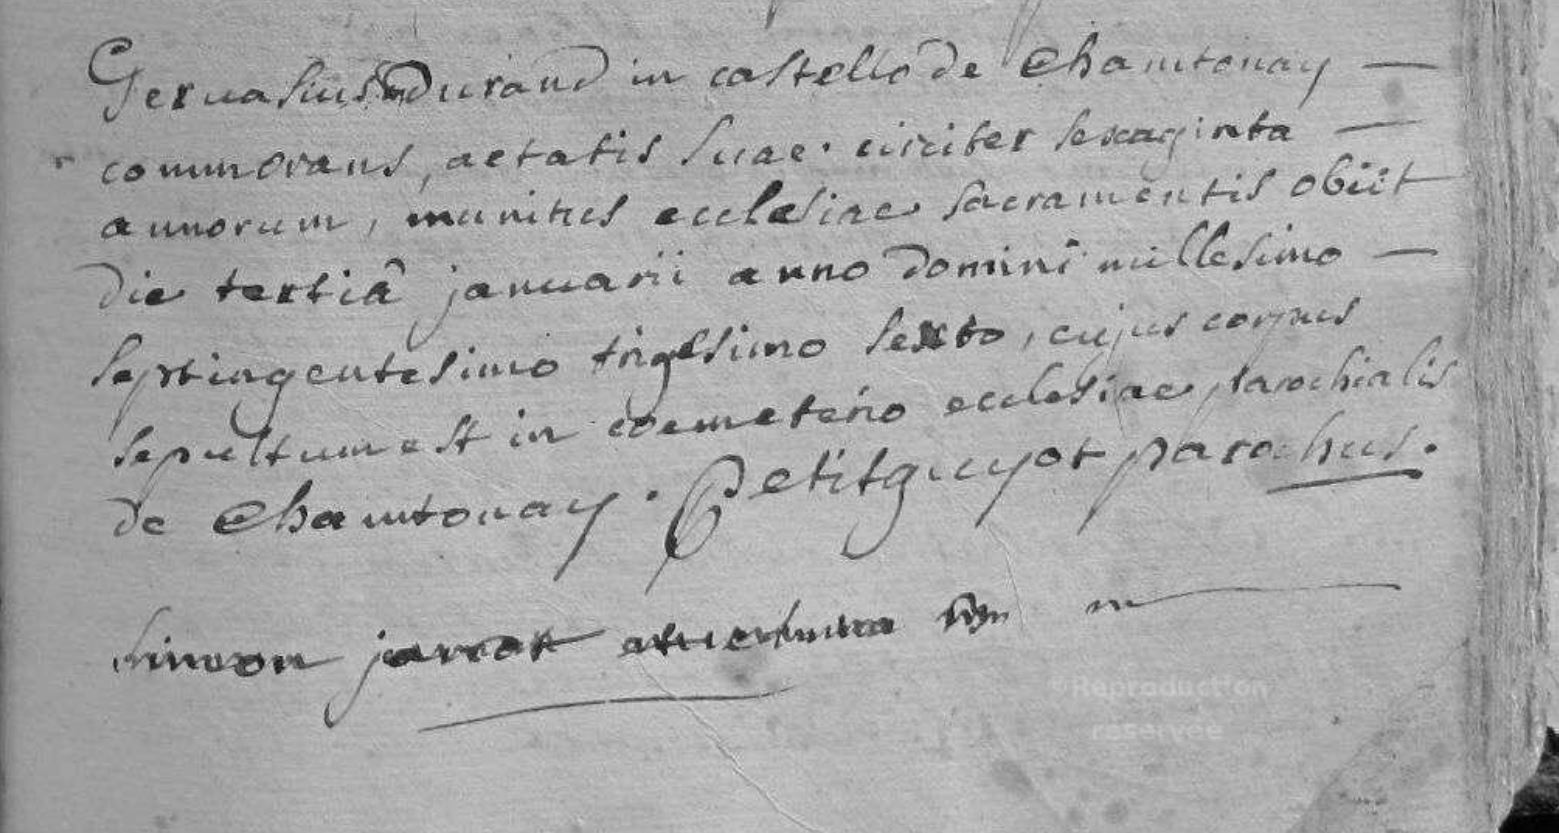 Gervasius Durand in castello de Chamtonay —
commorans, aetatis suae circiter sexaginta —
annorum, munitus ecclesiae sacramentis obiit
die tertiâ januarii anno domini millesimo —
septingentesimo trigesimo sexto, cujus corpus
sepultum est in coemeterio ecclesiae parochialis
de Chamtonay. Petitguyot parochus.
simeon jarrot
©Reproduction
réservée